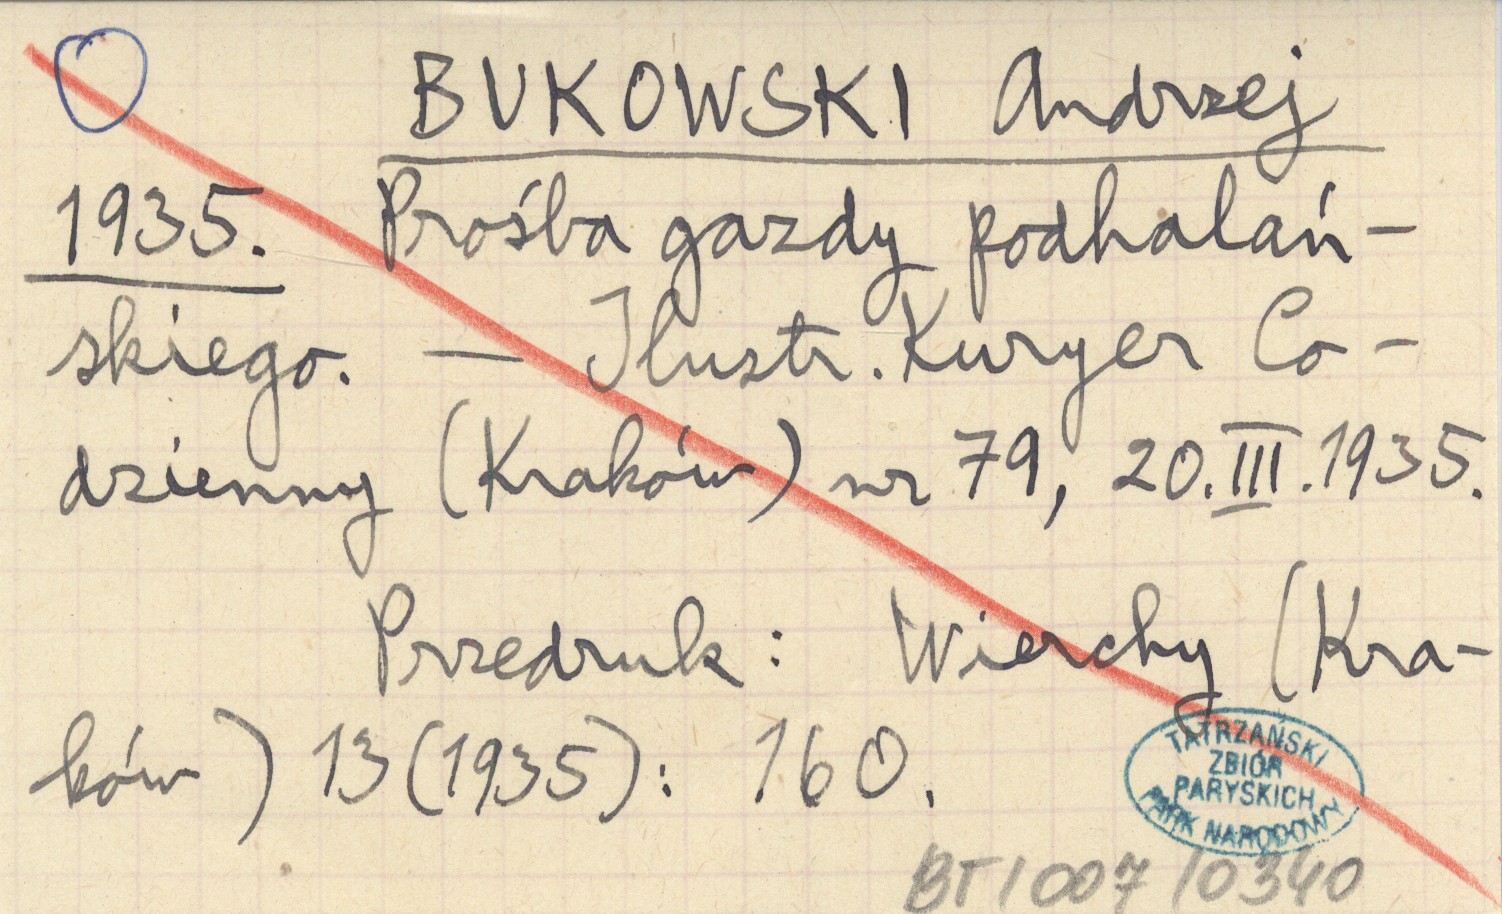 BUKOWSKI Andrzej
1935. Prośba gazdy podhalań-
skiego. — Ilustr. Kuryer Co-
dzienny (Kraków) nr 79, 20.III.1935.
Przedruk: Wierchy (Kra-
ków) 13(1935): 160.
TATRZAŃSKI
ZBIÓR
PARYSKICH
PARK NARODOWY
BT/007/0340